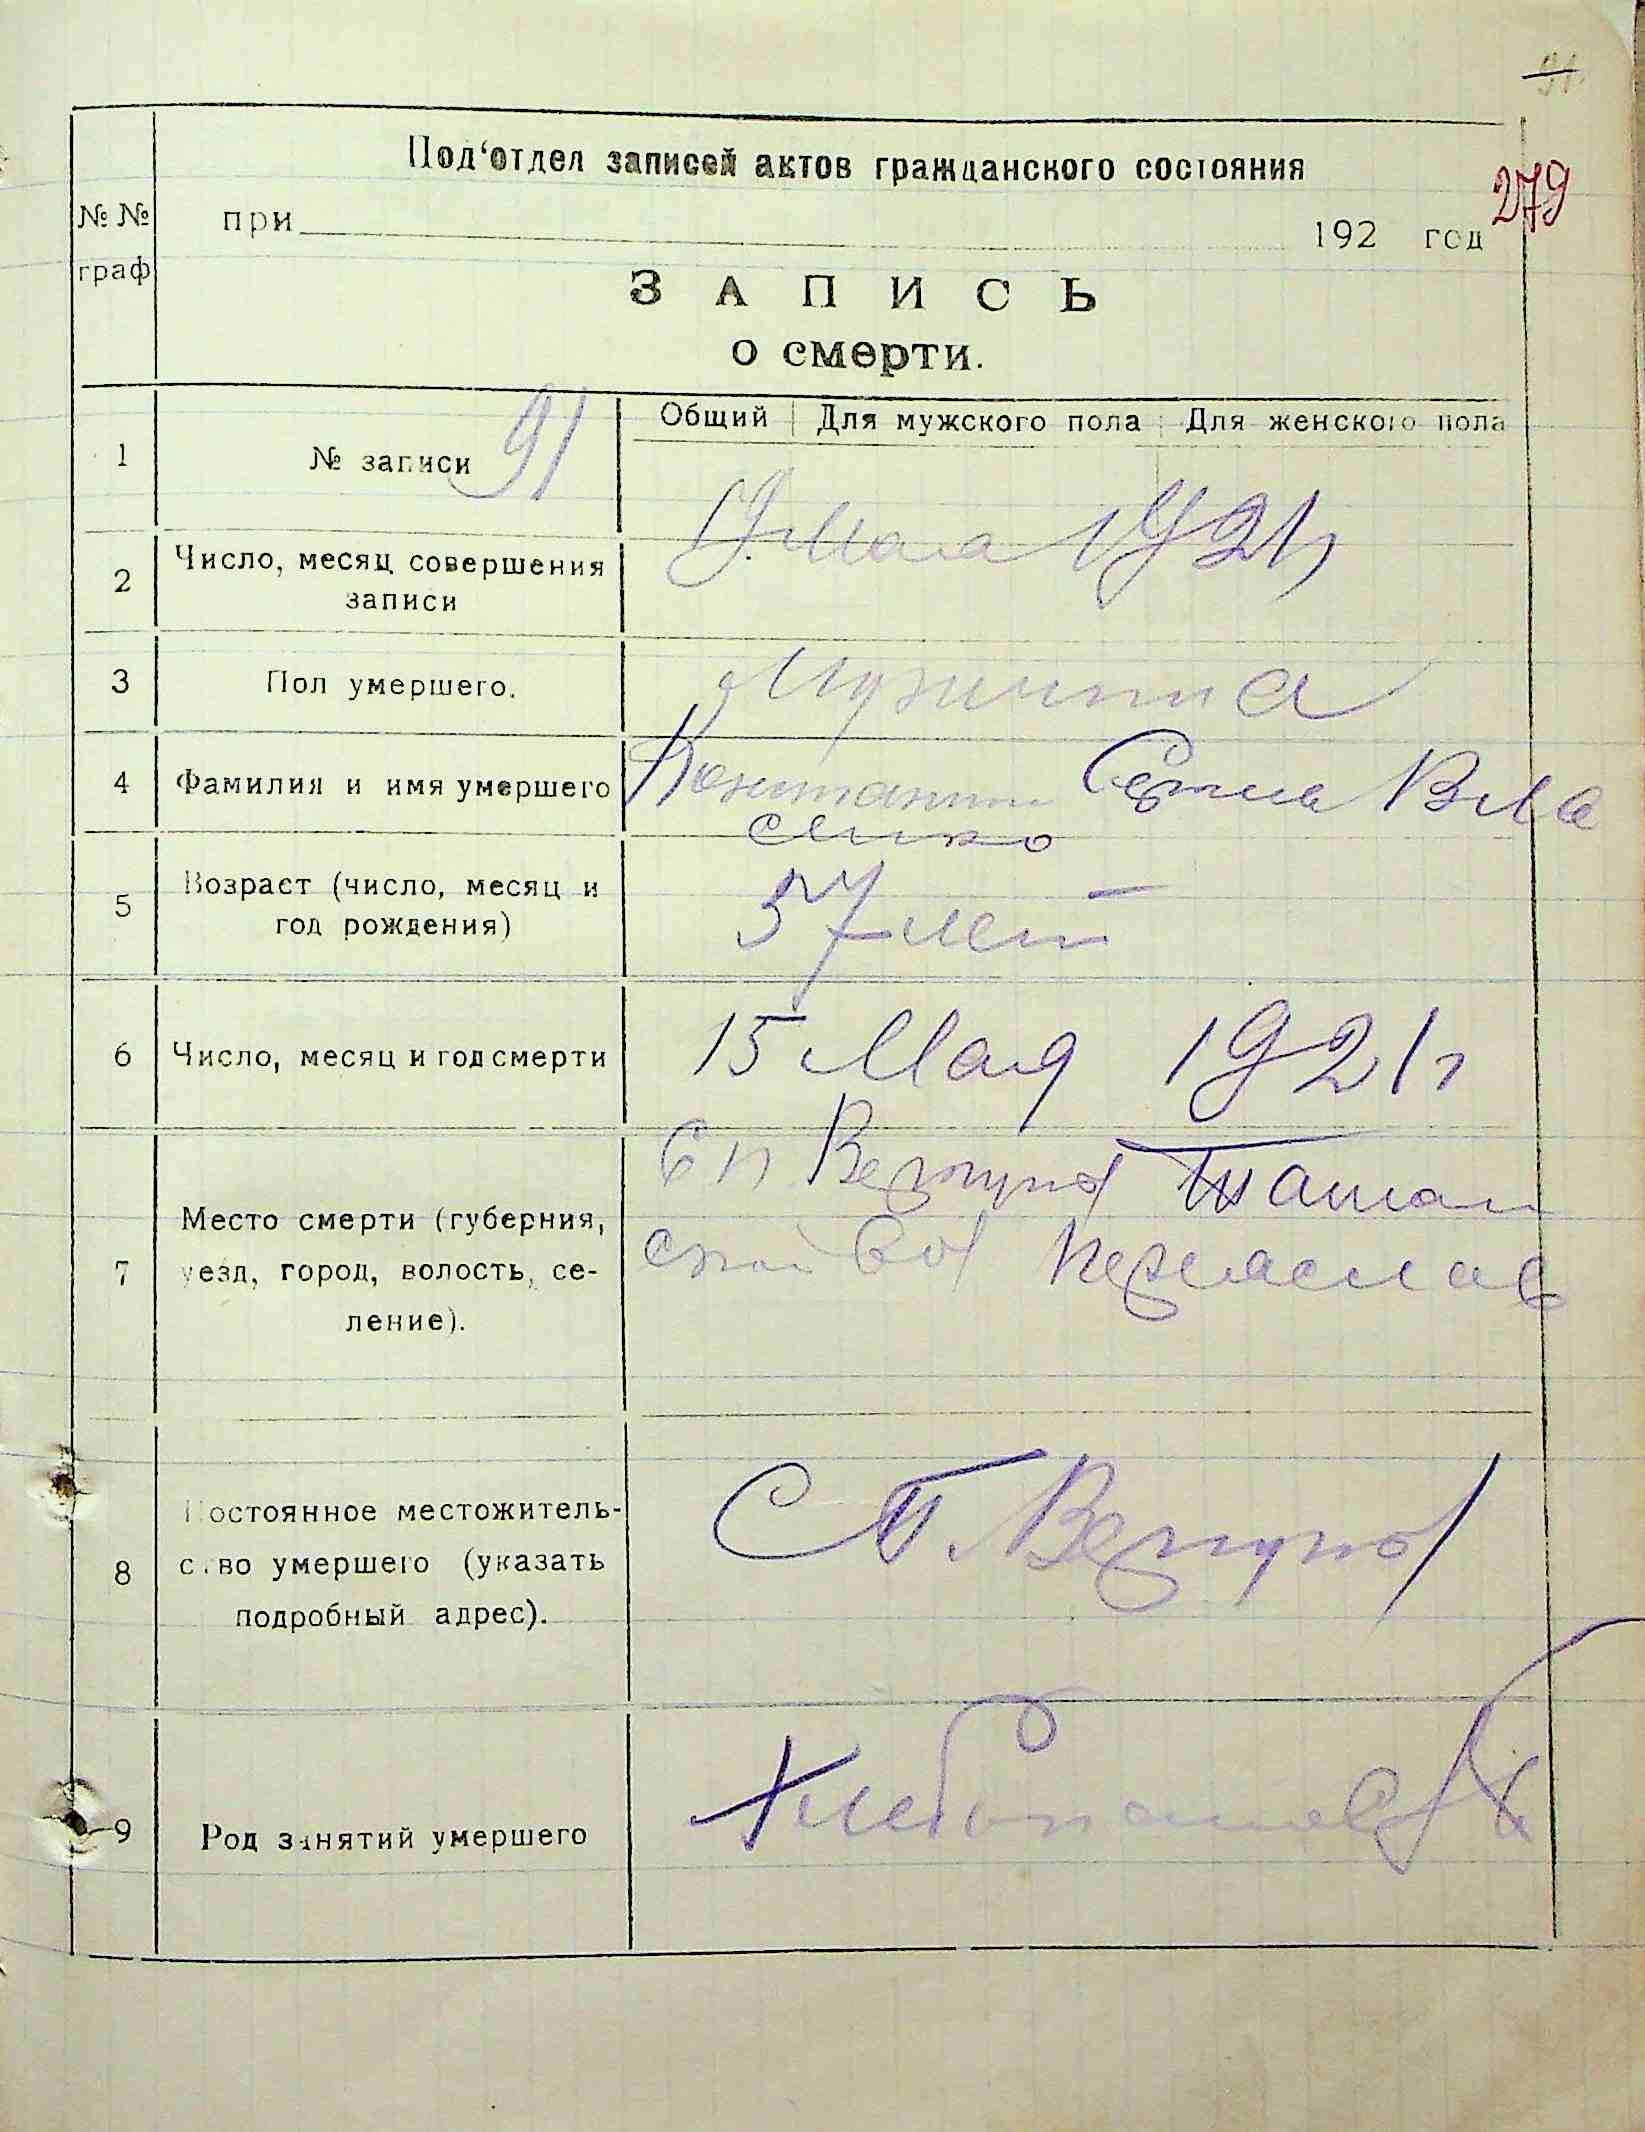 91.
Под‘отдел записей актов гражданского состояния
279
№ №
граф
при 192 год
ЗАПИСЬ
о смерти.
Общий Для мужского пола Для женского пола
1 № записи 91
2 Число, месяц совершения
записи
Мая 1921 г
3 Пол умершего. Мужчина
4 Фамилия и имя умершего Константин Вла
сенко
5 Возраст (число, месяц и
год рождения)
57 лет
6 Число, месяц и год смерти 15 Мая 1921 г
7 Место смерти (губерния,
уезд, город, волость, се-
ление).
Ташан
ской вол Переяслав
8 Постоянное местожитель-
ство умершего (указать
подробный адрес).
9 Род занятий умершего Хлебопашество